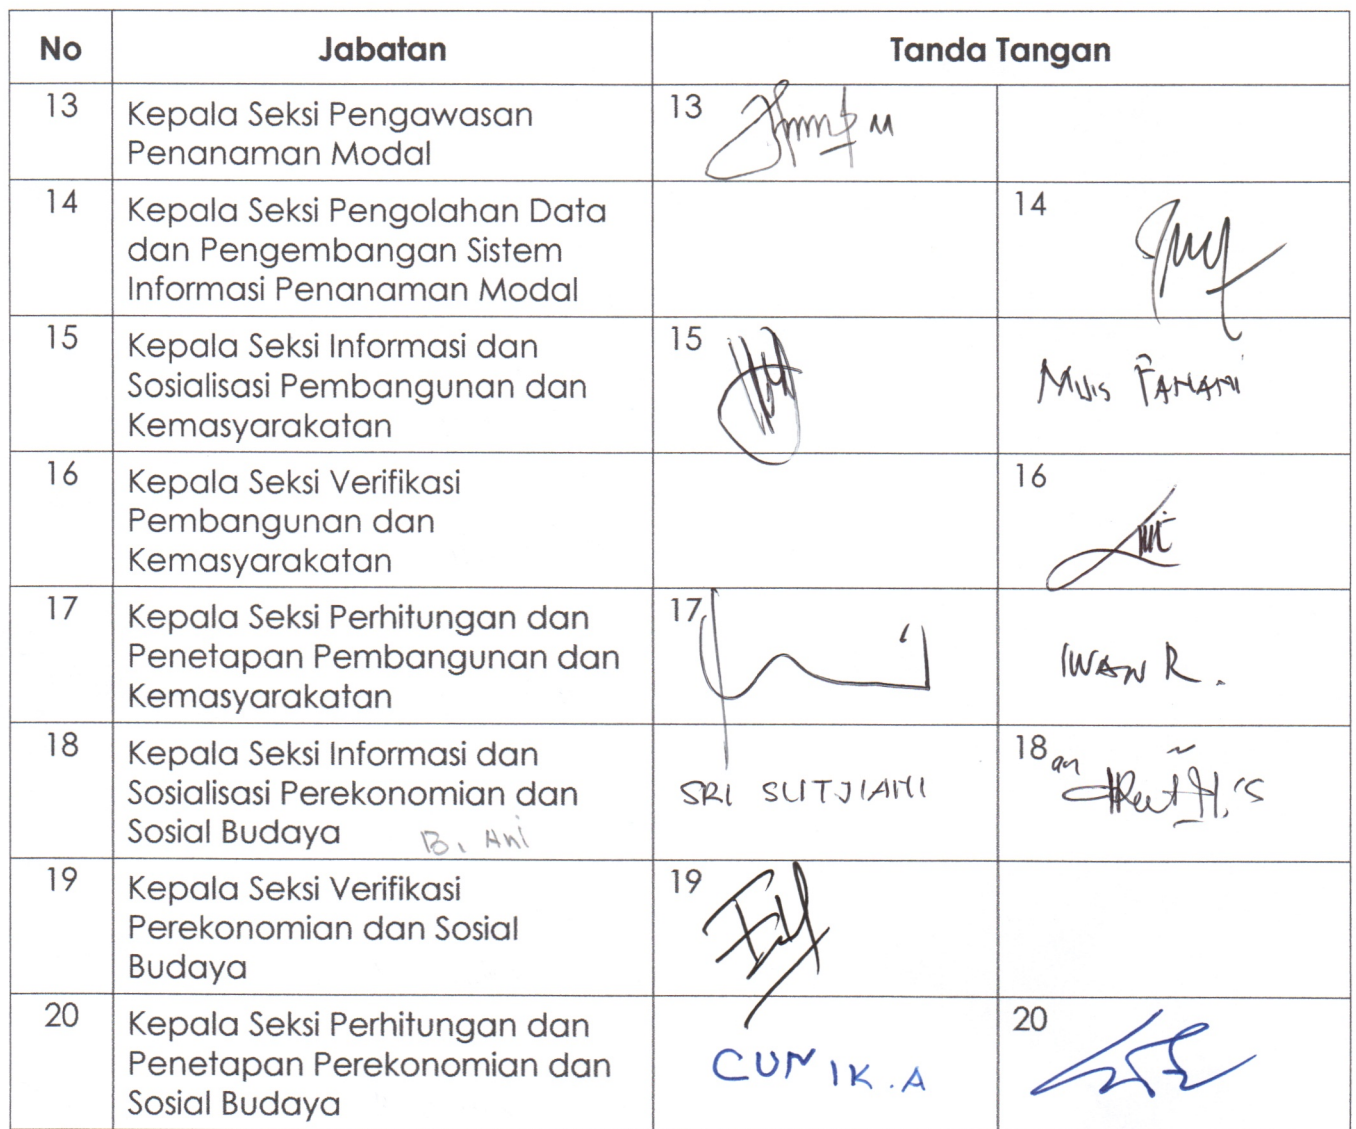 No Jabatan Tanda Tangan
13 Kepala Seksi Pengawasan 13
Penanaman Modal
14 Kepala Seksi Pengolahan Data 14
dan Pengembangan Sistem
Informasi Penanaman Modal
15 Kepala Seksi Informasi dan 15
Sosialisasi Pembangunan dan FANANI
Kemasyarakatan
16 Kepala Seksi Verifikasi 16
Pembangunan dan
Kemasyarakatan
17 Kepala Seksi Perhitungan dan 17
Penetapan Pembangunan dan IWAN R.
Kemasyarakatan
18 Kepala Seksi Informasi dan 18 an
Sosialisasi Perekonomian dan SRI SUTJIANI
Sosial Budaya B. Ani
19 Kepala Seksi Verifikasi 19
Perekonomian dan Sosial
Budaya
20 Kepala Seksi Perhitungan dan 20
Penetapan Perekonomian dan CUNIK.A
Sosial Budaya